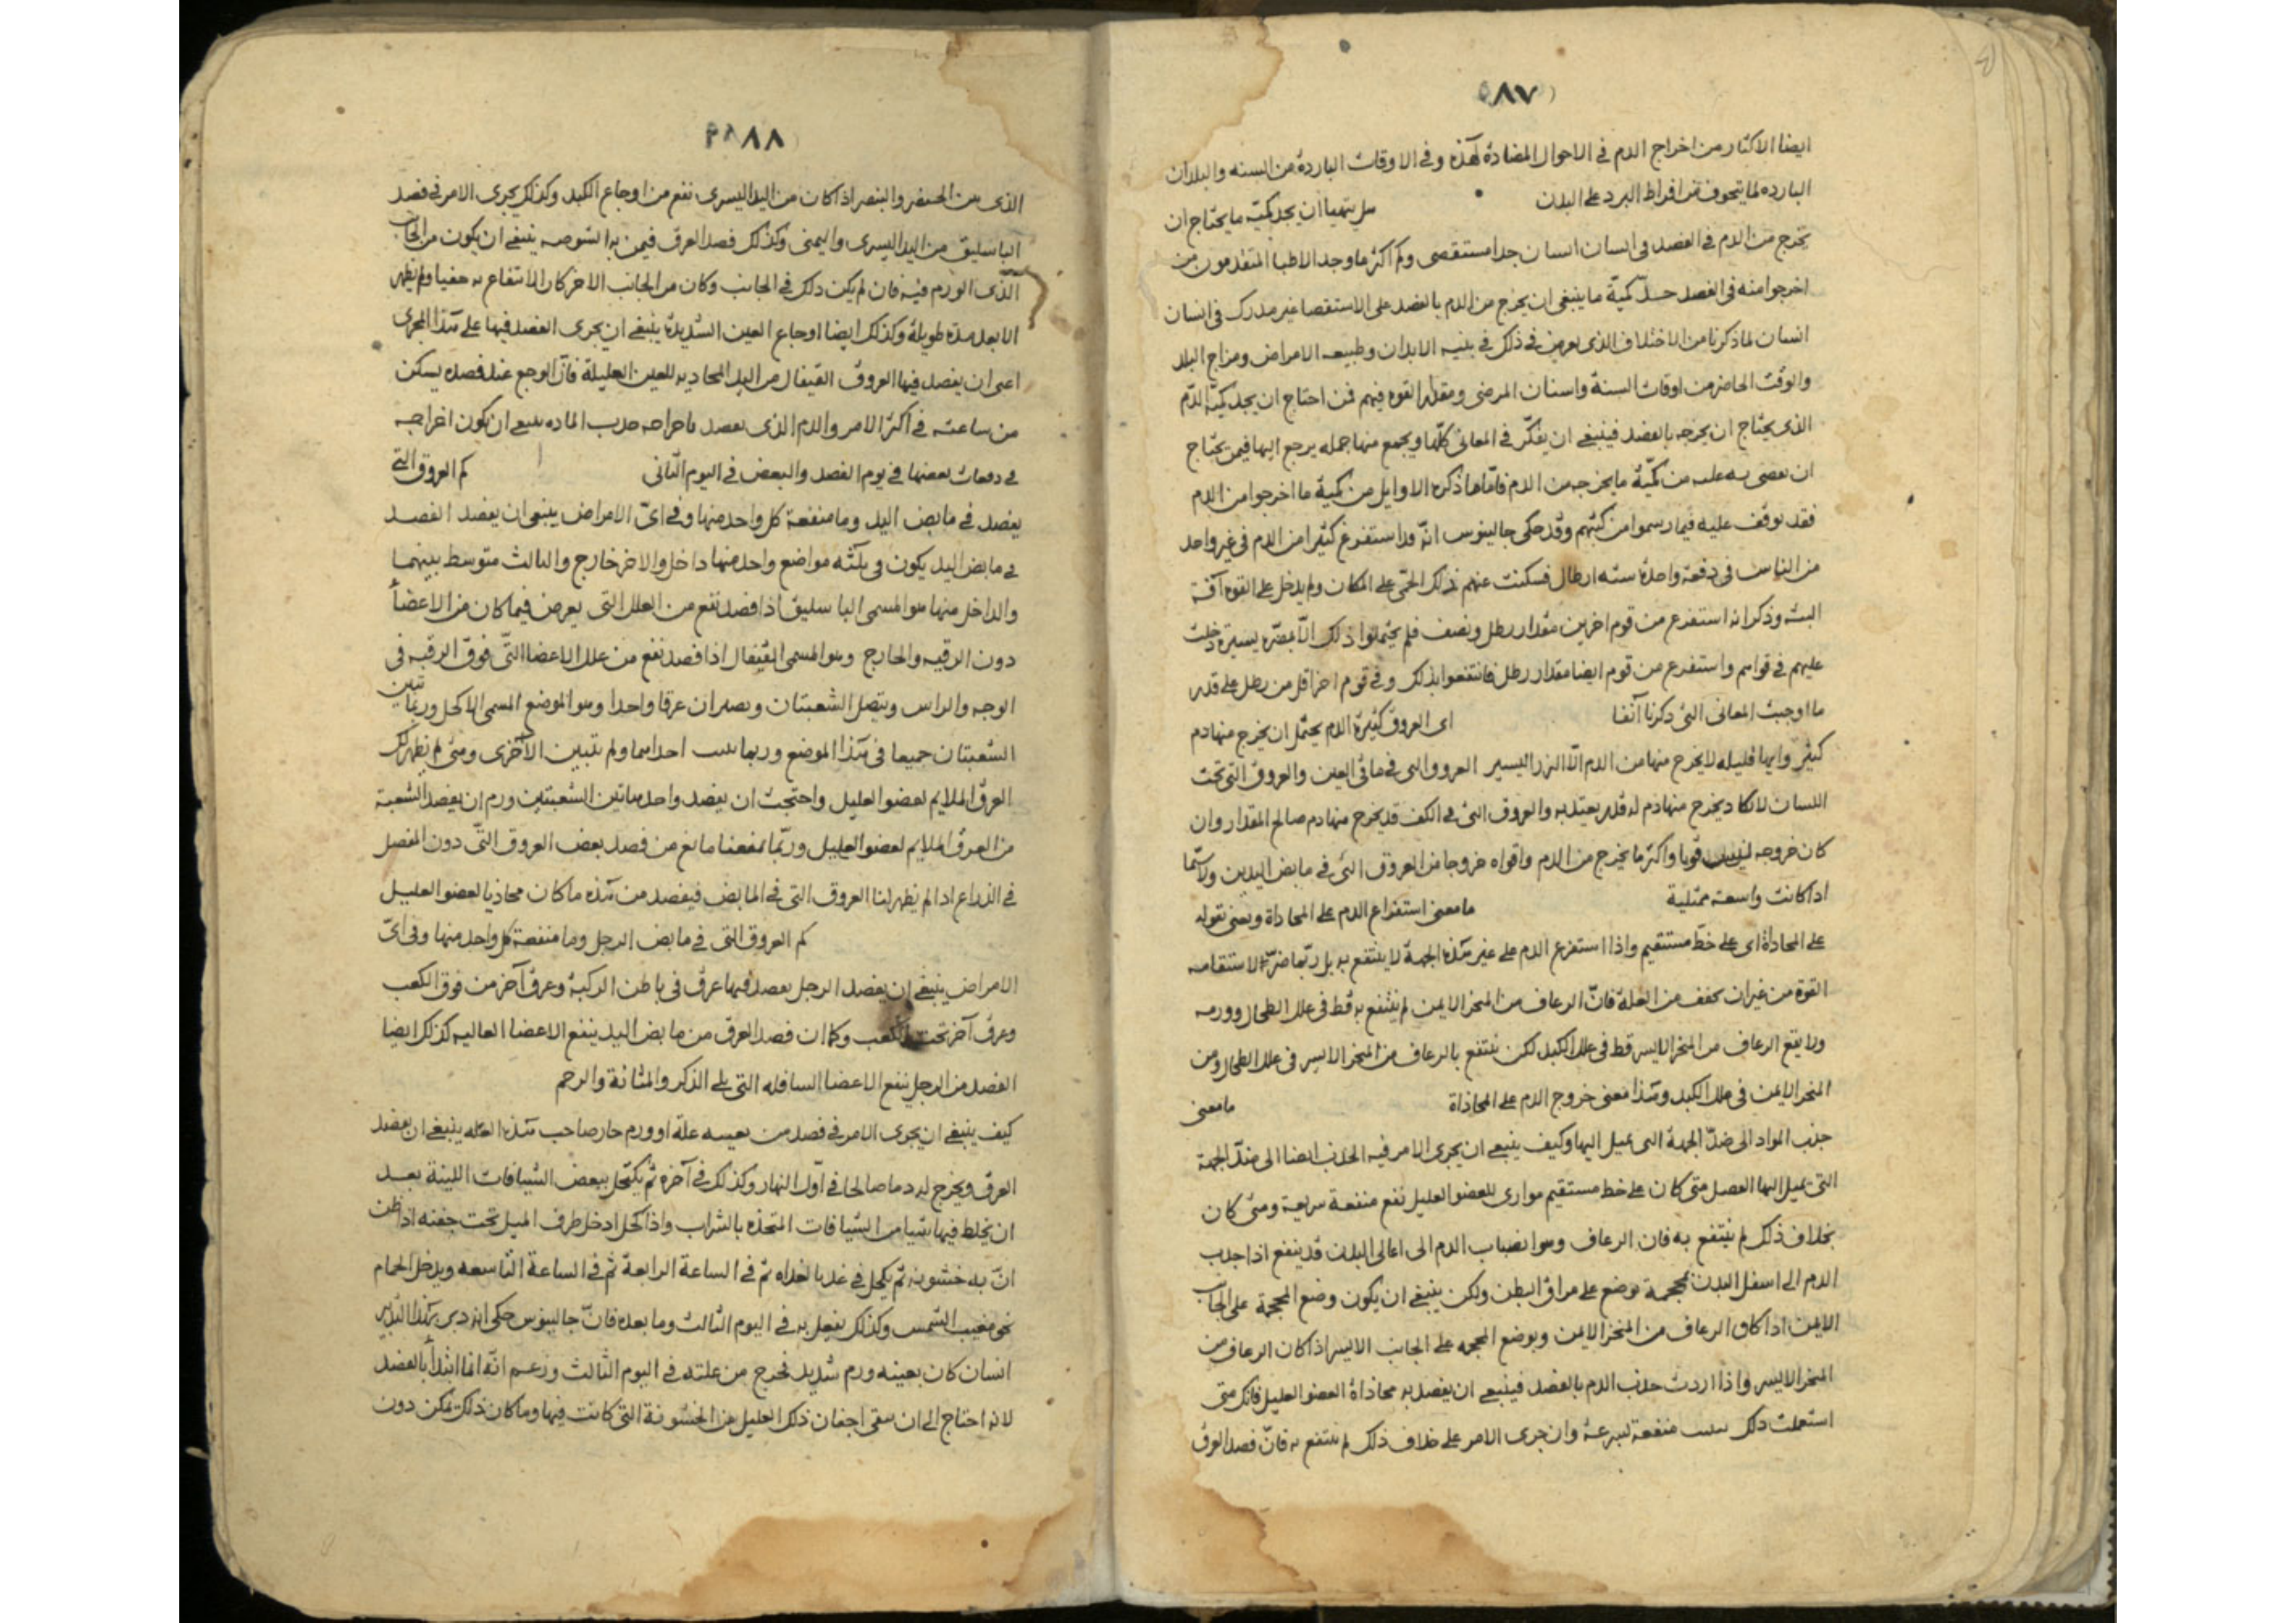 ٨٧
ايضا الاكثار من اخراج الدم في الاحوال المضادة لهذه وفي الاوقات الباردة من السنه والبلدان
البارده لما يتخوف من افراط البرد على البدن هل يتهيا ان يجد كميّة ما يحتاج ان
تخرج من الدم في الفصد في انسان انسان حدا مستقصى وكم اكثر ما وجد الاطبا المتقدمون من
اخرجوا منه في الفصد حدّ كميّة ما ينبغي ان يخرج من الدم بالفصد على الاستقصا غير مدرك في انسان
انسان لما ذكرنا من الاختلاف الذي يعرض في ذلك في بنيه الابدان وطبيعه الامراض ومزاج البلد
والوقت الحاضر من اوقات السنة واسنان المرضى ومقدار القوه فيهم فمن احتاج ان يجد كميّة الدّم
الذي يحتاج ان يخرجه بالفصد فينبغي ان يفكّر في المعاني كلّها ويجمع منها جمله يرجع اليها فيمن يحتاج
ان به عليه من كميّة ما يخرجه من الدم فامّا ما ذكره الاوايل من كمية ما اخرجوا من الدم
فقد يوقف عليه فيما رسموا من كتبهم وقد حكى جالينوس انّه قد استفرغ كثيرا من الدم في غير واحد
من الناس في دفعة واحدة سته ارطال فسكنت عنهم بذلك الحمّى على المكان ولم يدخل على القوه آفة
البته وذكر انه استفرغ من قوم اخرين مقدار رطل ونصف فلم يحتملوا ذلك الّا بمضرّه يسيرة دخلت
عليهم في قواهم واستفرغ من قوم ايضا مقدار رطل فانتفعوا بذلك وفي قوم اخر اقل من رطل على قدر
ما اوجبت المعاني التي ذكرنا آنفا اي العروق كثيرة الدم يحتمل ان يخرج منها دم
كثير وايها قليله لا يخرج منها من الدم الّا النزر اليسير العروق التي في ماقي العين والعروق التي تحت
اللسان لا يكاد يخرج منها دم له قدر يعتد به والعروق التي في الكف قد يخرج منها دم صالح المقدار وان
كان خروجه ليس قويا واكثر ما يخرج من الدم واقواه خروجا من العروق التي في مابض اليدين ولا سيّما
اذا كانت واسعة ممتلية ما معنى استفراغ الدم على المحاذاة ويعني بقوله
على المحاذاة اي على خطّ مستقيم واذا استفرغ الدم على غير هذه الجهة لا ينتفع به بل ربّما ضرّ لاستفراغه
القوة من غير ان يخفف من العلّة فانّ الرعاف من المنخر الايمن لم ينتفع به قط في علل الطحال وورمه
ولا يقع الرعاف من المنخر الايسر قط في علل الكبد لكن ينتفع بالرعاف من المنخر الايسر في علل الطحال ومن
المنخر الايمن في علل الكبد وهذا معنى خروج الدم على المحاذاة ما معنى
جذب المواد الى ضدّ الجهة التي تميل اليها وكيف ينبغي ان يجري الامر فيه الجذب ايضا الى ضدّ الجهة
التي يميل اليها الفصل متى كان على خط مستقيم موازي للعضو العليل نفع منفعة سريعة ومتى كان
بخلاف ذلك لم ينتفع به فان الرعاف وهو انصباب الدم الى اعالي البدن قد ينفع اذا جذب
الدم الى اسفل البدن بمحجمة توضع على مراق البطن ولكن ينبغي ان يكون وضع المحجمة على الجانب
الايمن اذا كان الرعاف من المنخر الايمن ويوضع المحجمه على الجانب الايسر اذا كان الرعاف من
المنخر الايسر واذا اردت جذب الدم بالفصد فينبغي ان يفصد به محاذاة العضو العليل فانك متى
استعملت ذلك منفعة لسرعة وان جرى الامر على خلاف ذلك لم ينتفع به فانّ فصد العرق
٨٨
الذي بين الخنصر والبنصر اذا كان من اليد اليسرى نفع من اوجاع الكبد وكذلك يجري الامر في فصد
الباسليق من اليد اليسرى واليمنى وكذلك فصد العرق فيمن به الشوصه ينبغي ان يكون من الجانب
الّذي الورم فيه فان لم يكن ذلك في الجانب وكان من الجانب الاخر كان الانتفاع به خفيا ولم يظهر
الا بعد مدة طويلة وكذلك ايضا اوجاع العين الشديدة ينبغي ان يجري الفصد فيها على هذا المجرى
اعني ان يفصد فيها العروق القيفال من اليد المحاذيه للعين العليلة فانّ الوجع عند فصده يسكن
من ساعته في اكثر الامر والدم الذي يقصد باخراجه جذب الماده ينبغي ان يكون اخراجه
في دفعات بعضها في يوم الفصد والبعض في اليوم الثاني كم العروق التي
يفصد في مابض اليد وما منفعة كل واحد منها وفي ايّ الامراض ينبغي ان يفصد الفصد
في مابض اليد يكون في ثلثه مواضع واحد منها داخل والاخر خارج والثالث متوسط بينهما
والداخل منها هو المسمى الباسليق اذا فصد نفع من العلل التي يعرض فيما كان من الاعضأ
دون الرقبه والخارج وهو المسمى القيفال اذا فصد نفع من علل الاعضا التّي فوق الرقبه في
الوجه والراس ويتصل الشعبتان ويصيران عرقا واحدا وهو الموضع المسمى الاكحل وربما تبين
الشعبتان جميعا في هذا الموضع وربما تبينت احداهما ولم تتبين الاخرى ومتى لم يظهر لك
العرق الملايم لعضو العليل واحتجت ان يفصد واحد هاتين الشعبتين ورم ان يفصد الشعبة
من العرق الملايم لعضو العليل وربّما من فصد بعض العروق التّي دون المفصل
في الذراع اذا لم يظهر لنا العروق التي في المابض فيفصد من هذه ما كان محاذيا لعضو العليل
كم العروق التي في مابض الرجل وما منفعة كل واحد منها وفي ايّ
الامراض ينبغي ان يفصد الرجل يفصد فيها عرق في باطن الركبة وعرق آخر من فوق الكعب
وعرق آخر تحت الكعب وكما ان فصد العرق من مابض اليد ينفع الاعضا العاليه كذلك ايضا
الفصد من الرجل ينفع الاعضا السافله التي يلي الذكر والمثانة والرحم
كيف ينبغي ان يجري الامر في فصد من بعينه علّة او ورم حار صاحب هذه العلّه ينبغي ان يفصد
العرق ويخرج له دما صالحا في اوّل النهار وكذلك في آخره ثم يكتحل ببعض الشيافات اللينة بعد
ان يخلط فيها شيا من الشيافات المتخذه بالشراب واذا كحل ادخل طرف الميل تحت جفنه اذا ظن
انّ به خشونه ثم يكحل في غد بالغداه ثم في الساعة الرابعة ثم في الساعة التاسعه ويدخل الحمام
نحو مغيب الشمس وكذلك يفعل به في اليوم الثالث وما بعده فانّ جالينوس حكى انه دبر بهذا التدبير
انسان كان بعينه ورم شديد فخرج من علته في اليوم الثالث وزعم انّه انما ابتدأ بالفصد
لانه احتاج الى ان ينقى اجفان ذلك العليل من الخشونة التي كانت فيها وما كان ذلك يمكن دون